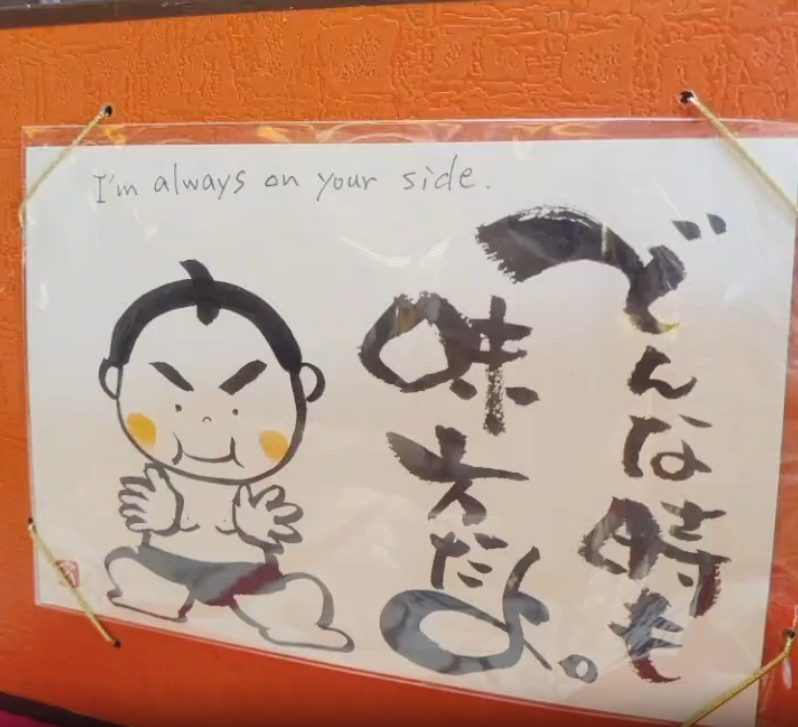 I'm always on your side.
どんな時も
味方だよ。